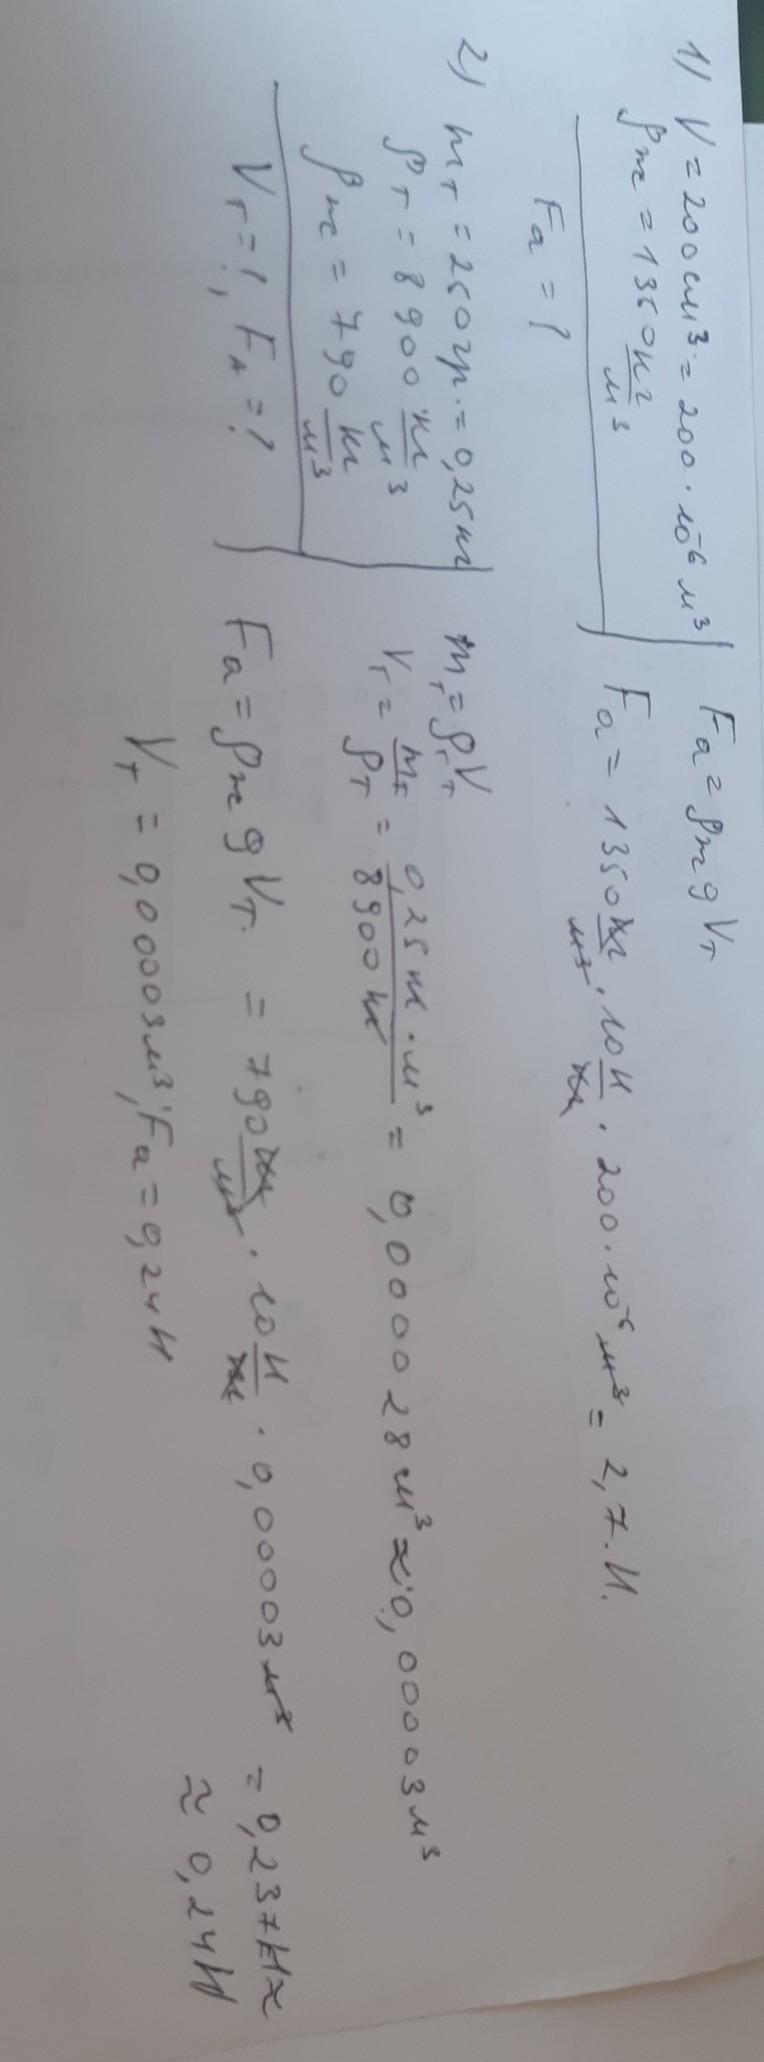 1) V = 200 см³ = 200 · 10⁻⁶ м³
ρж = 1350 кг/м³
Fа = ?
Fа = ρж g Vт
Fа = 1350 кг/м³ · 10 Н/кг · 200 · 10⁻⁶ м³ = 2,7 Н.
2) mт = 250 гр. = 0,25 кг
ρт = 8900 кг/м³
ρж = 790 кг/м³
Vт = ?, FА = ?
mт = ρт Vт
Vт = mт/ρт = 0,25 кг · м³/8900 кг = 0,000028 м³ ≈ 0,00003 м³
Fа = ρж g Vт. = 790 кг/м³ · 10 Н/кг · 0,00003 м³ = 0,237 Н ≈
≈ 0,24 Н
Vт = 0,00003 м³; Fа = 0,24 Н